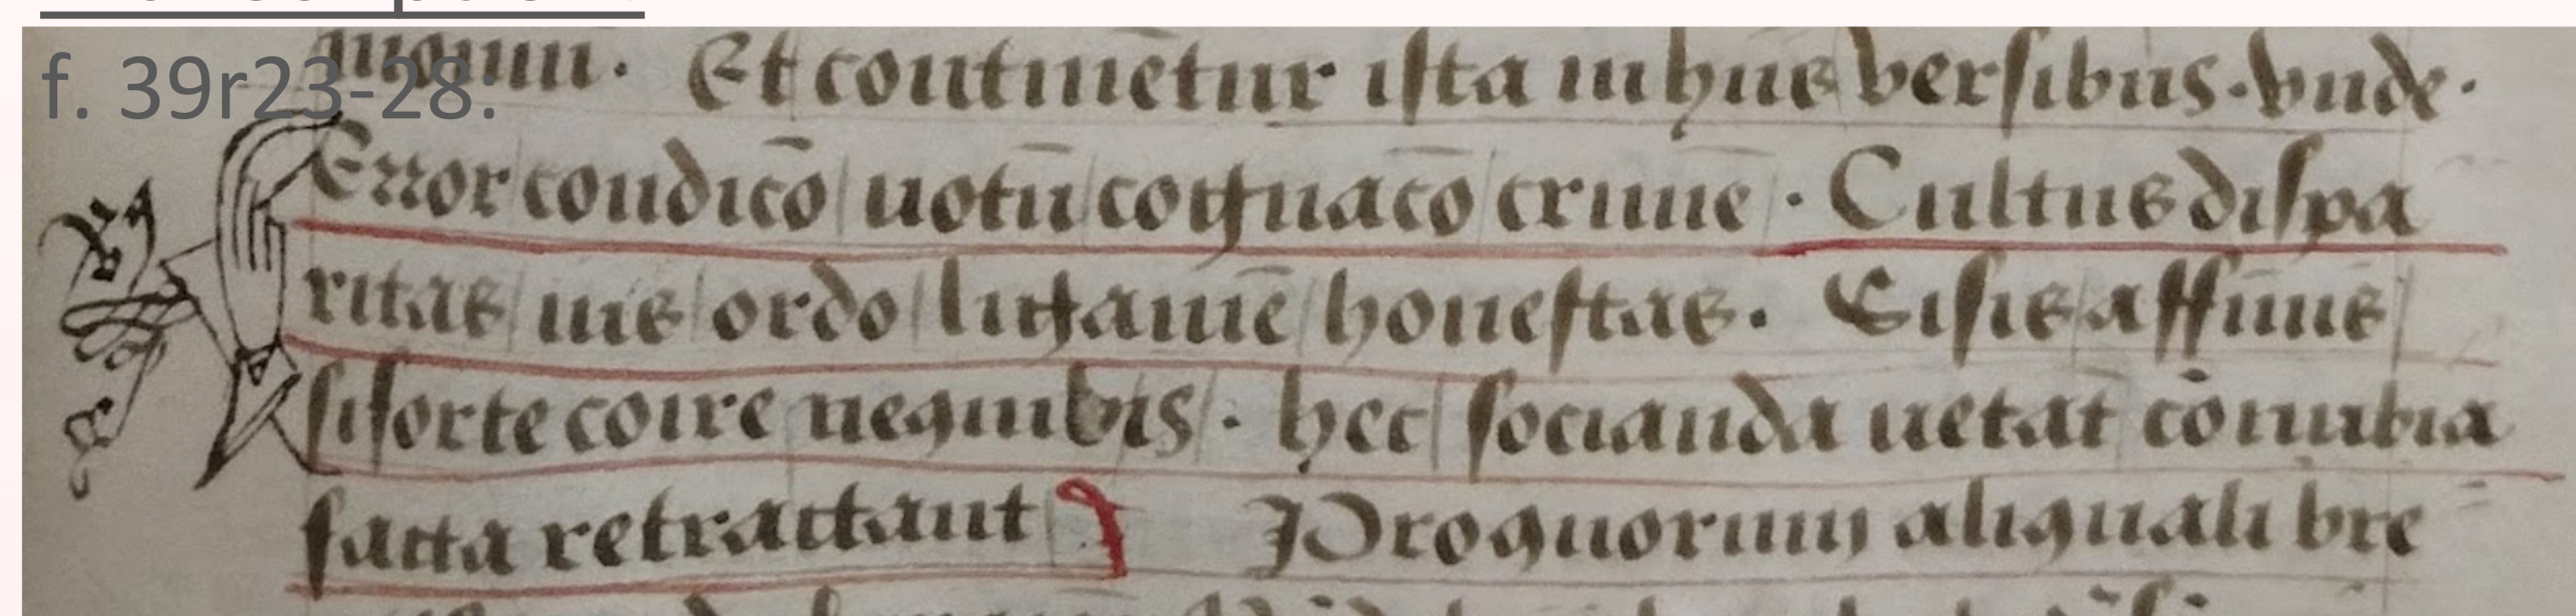 f. 39r23-28:
Et continēt̄ur ista in hijs versibus · vnde ·
Error condicō uotū cogͣnacō crimē · Cultus dispa
ritas uis ordo ligͣamē honestas · Si sis affinis
si forte coire nequibis · hec socianda uetāt cōnubia
facta retractant Pro quorum aliquali bre